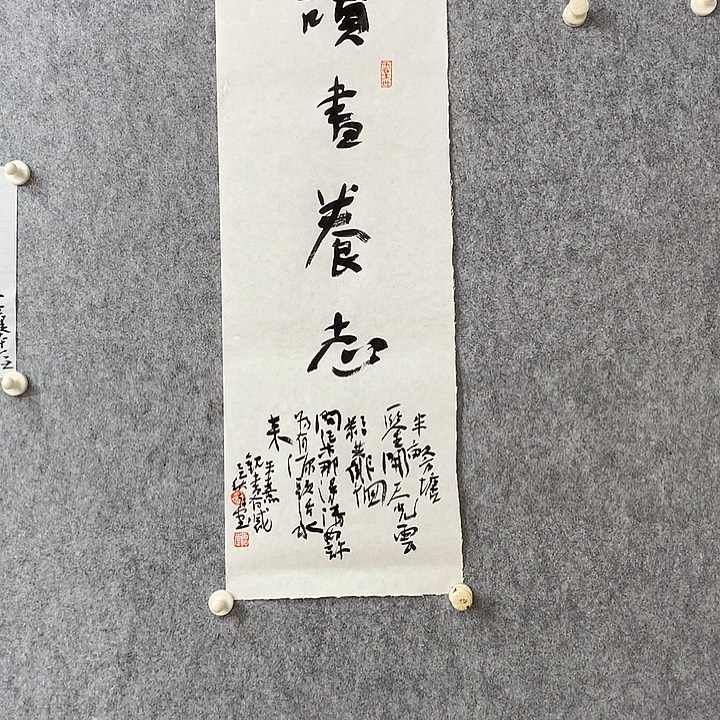 讀
書
養
志
半畝方塘
一鑒開天光雲
影共徘徊
問渠那得清如許
為有源頭活水
來
朱熹
觀書有感